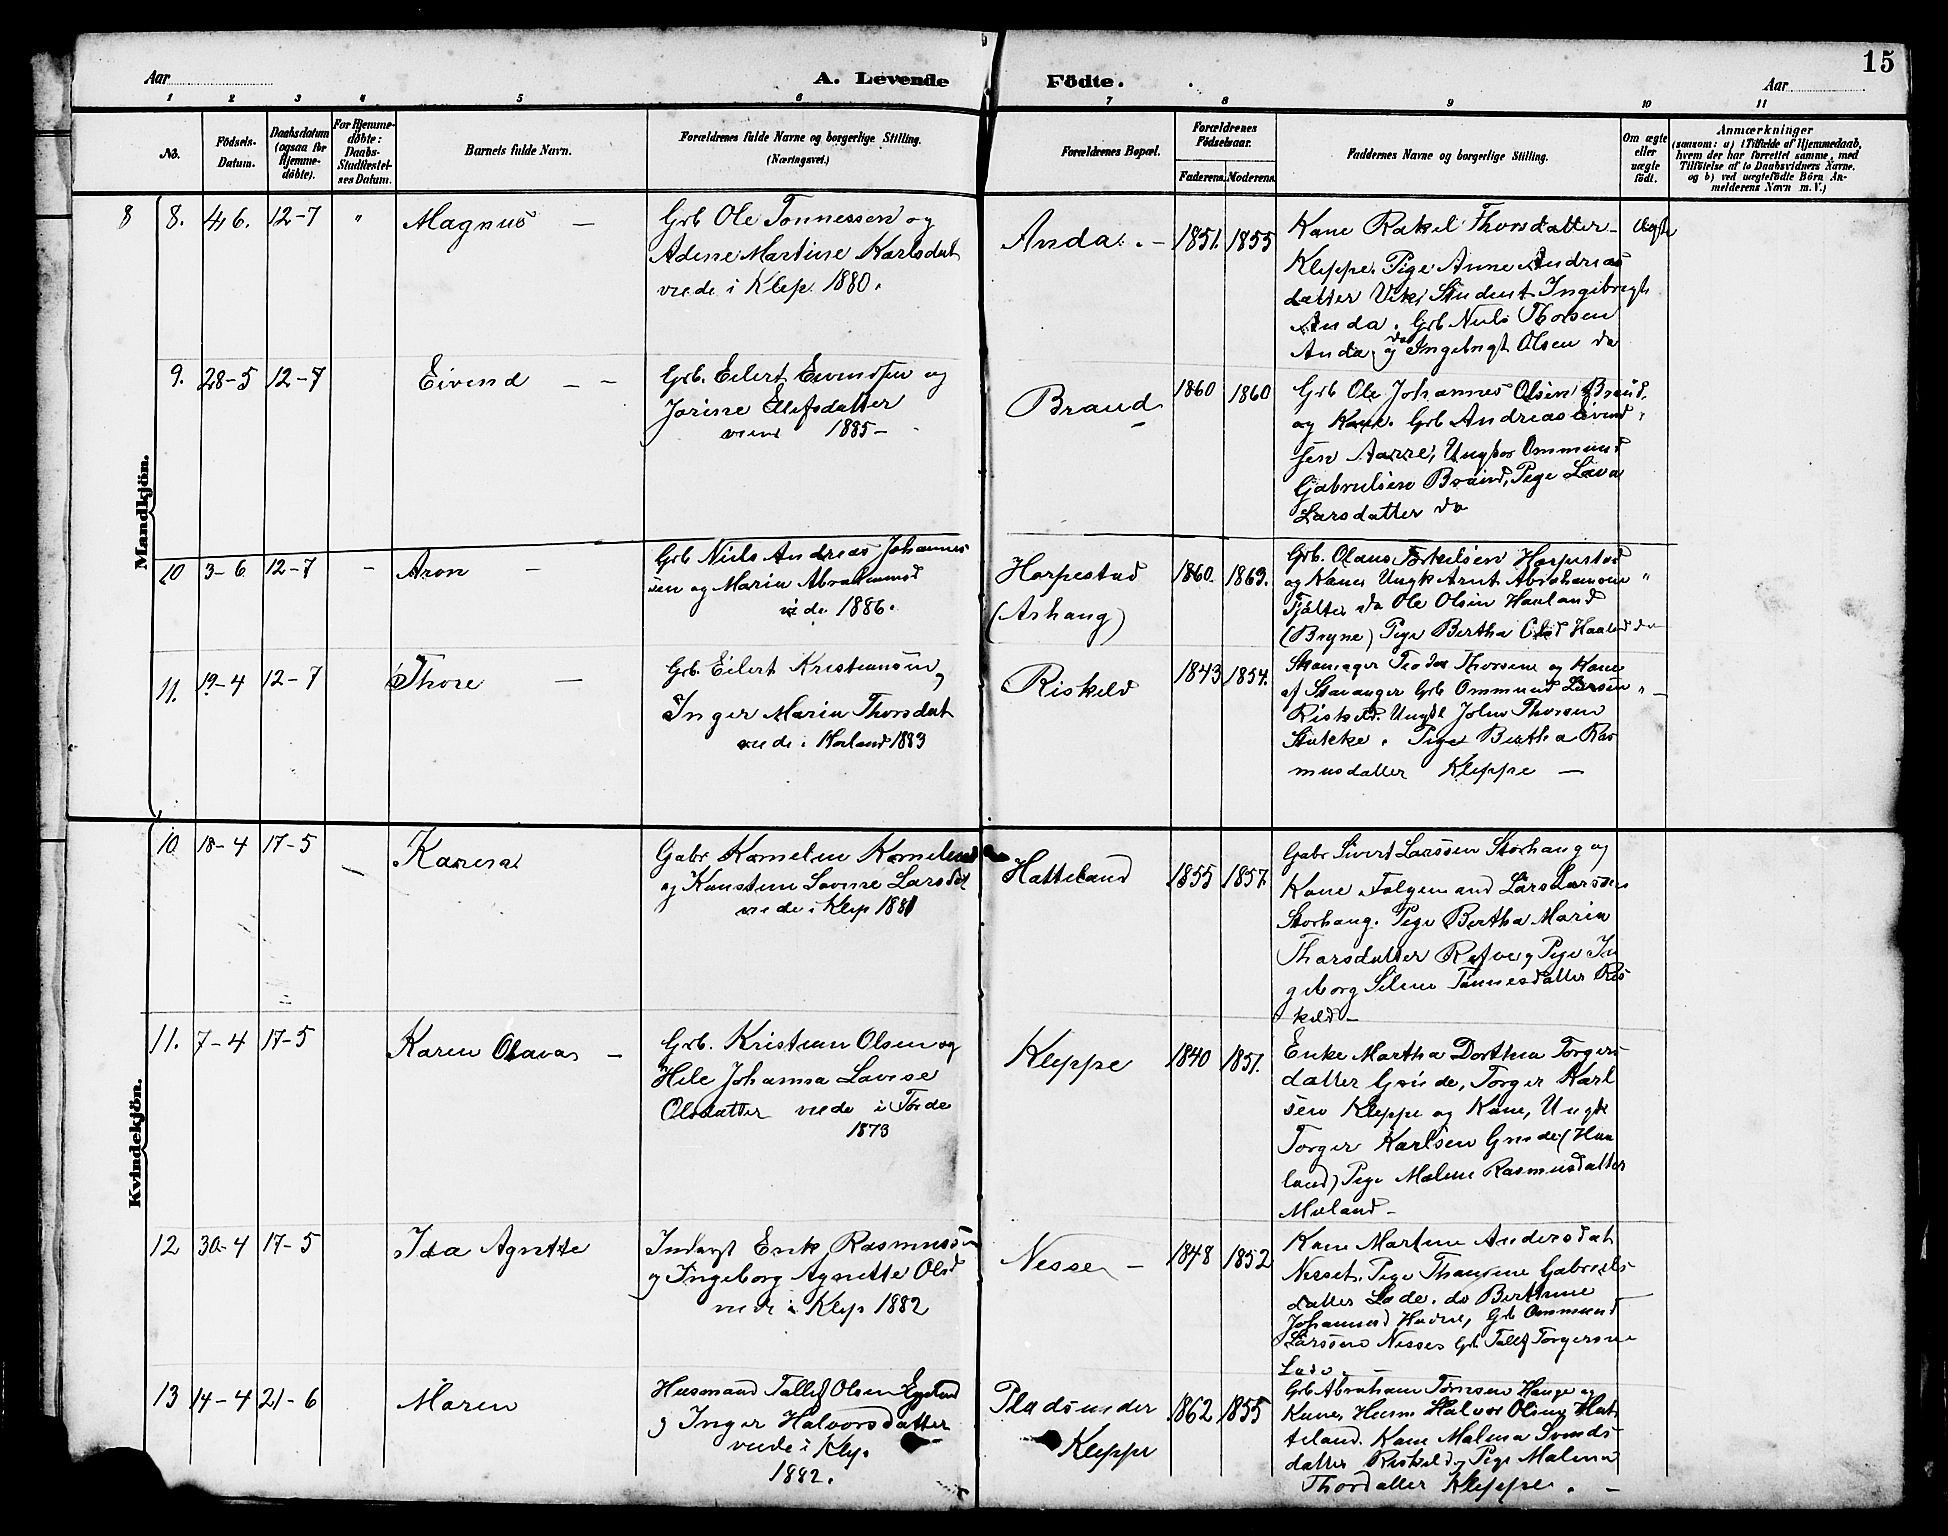 15
Aar
A. Levende
Födte.
Aar
1 2 3 4 5 6 7 8 9 10 11
No.
Födsels-
Datum.
Daabsdatum
(ogsaa for
Hjemme-
döbte).
For Hjemme-
döbte:
Daabs-
Stadfæstel-
ses Datum.
Barnets fulde Navn.
Forældrenes fulde Navne og borgerlige Stilling.
(Næringsvei.)
Forældrenes Bopæl.
Forældrenes
Födselsaar.
Faderens.
Moderens.
Faddernes Navne og borgerlige Stilling.
Om ægte
eller
uægte
födt.
Anmærkninger
(saasom: a) i Tilfælde af Hjemmedaab,
hvem der har forrettet samme, med
Tilföielse af to Daabsvidners Navne.
og b) ved uægtefödte Börn An-
melderens Navn m. V.)
Mandkjön.
8 8. 4/6. 12-7 " Magnus —
Grb Ole Tonnessen og
Adene Martine Karlsdat
viede i Klep 1880.
Anda. — 1851. 1855
Kone Rakel Thorsdatter
Kleppe. Pige Anne Andreas
datter Vik, Student Ingebregt
Anda. Grb Niels Thorsen
Anda, og Ingebrigt Olsen do
Ægte
9. 28-5 12-7 Eivend — —
Grb. Eilert Eivendsen og
Jorine Ellefsdatter
viede 1885 —
Braud 1860 1860
Grb Ole Johannes Olsen Braud,
og Kone. Grb Andreas Eivend
sen Aarre, Ungkar Ommund
Gabrielsen Braud, Pige Lava
Larsdatter do
"
10 3-6 12-7 - Aron —
Grb Niels Andreas Johannes
sen og Maria Abrahamsd
viede 1886.
Horpestad
(Ashaug)
1860. 1863.
Grb. Olaus Torkelsen Horpestad
og Kone Ungk Arnt Abrahamsen
Tjötter do Ole Olsen Haaland
(Bryne) Pige Bertha Olsd Haaland do
"
11. 19-4 12-7 Thore —
Grb. Eilert Kristiansen
og
Inger Maria Thorsdat
viede i Norland 1883
Riskeld 1843 1854.
Thorsen og Kone
af Stavanger Grb Ommund Larsen
Riskeld. Ungk John Thorsen
Stukke. Pige Bertha Ras
musdatter Kleppe —
" —
Kvindekjön.
10 18-4 17-5 Karina
Gabr Kornelius Kornelius
og Lovise Larsdat
viede i Klep 1881
Hatteland 1855 1857.
Gabr Sivert Larssen Storhaug og
Kone Lars Larssen
Storhaug. Pige Bertha Maria
Thorsdatter Pige In
geborg Seline Tonnesdatter Ris
keld —
11. 7-4 17-5 Karen Olava —
Grb. Kristian Olsen og
Hele Johanna Lavise
Olsdatter viede i
1873
Kleppe 1840 1851.
Enke Martha Dorthea Torgers
datter Grude, Torger Karl
sen Kleppe og Kone, Ungk
Torger Karlsen Grude (Haa
land) Pige Malene Rasmusdatter
Mæland —
12 30-4 17-5 Ida Agnette
Erik Rasmussen
og Ingeborg Agnette Olsd
viede i Klep 1882
Nesse — 1848 1852
Kone Martine Andersdat
Nesset. Pige Gabriels
datter Lode. do Berthine
Johannesd Grb Ommund
Larssen Nesse, Grb Tollef Torgersen
Lode
13 14-4 21-6 Maren
Husmand Tollef Olsen
og Inger Halvorsdatter
viede i Klep.
1882.
Pladsunder
Kleppe
1862 1855
Grb Abraham Hauge og
Kone, Husm Halvor Olsen Hat
teland. Kone Malena Svends
datter Riskeld, Pige Malena
Thordatter Kleppe. —